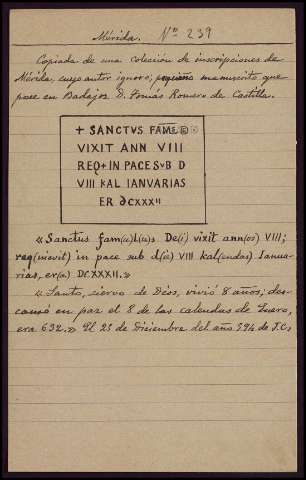 Mérida. Nº 239
Copiada de una colección de inscripciones de
Mérida, cuyo autor ignoro, pequeño manuscrito que
posee en Badajoz D. Tomás Romero de Castilla.
+ SANCTVS FAML DI
VIXIT ANN VIII
REQ+IN PACE SVB D
VIII KAL IANVARIAS
ER DCXXXII
«Sanctus fam(u)l(u)s De(i) vixit ann(os) VIII;
req(uievit) in pace sub d(ie) VIII kal(endas) Ianua-
rias, er(a) DCXXXII.»
«Santo, siervo de Dios, vivió 8 años; des-
cansó en paz el 8 de las calendas de Enero,
era 632.» El 25 de Diciembre del año 594 de J.C.